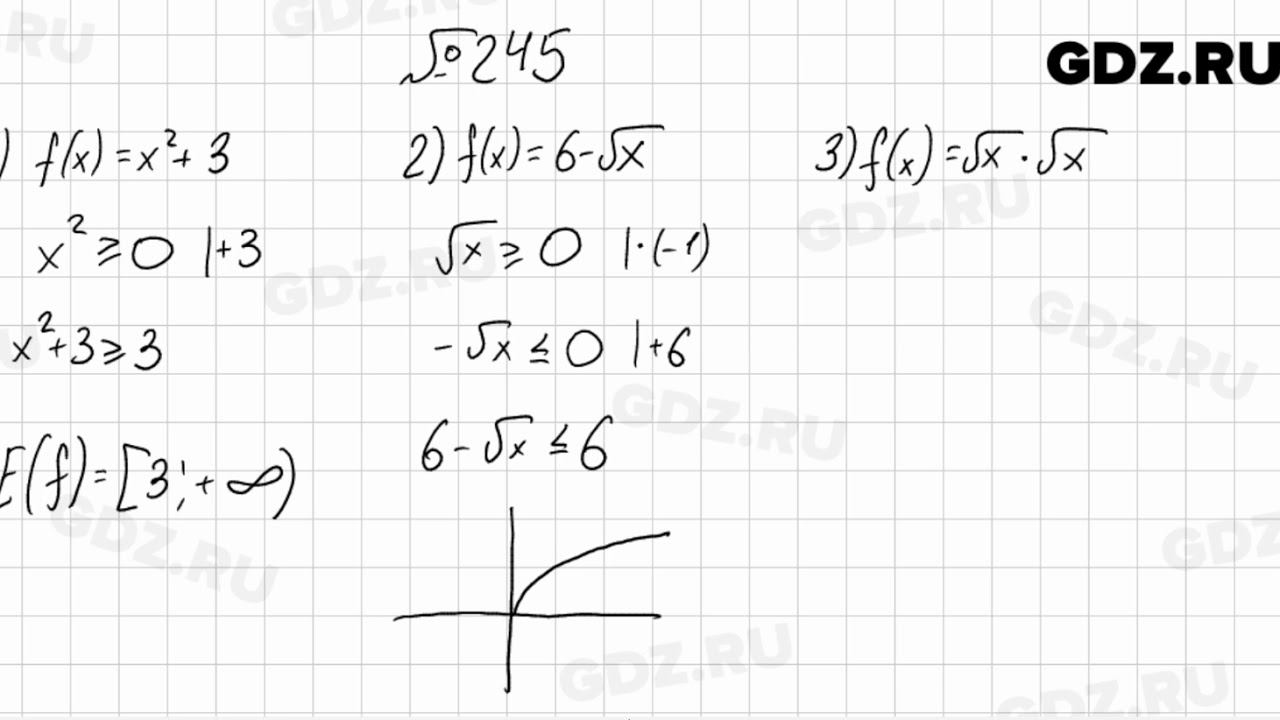 № 245
GDZ.RU
) f(x) = x² + 3
x² ⩾ 0 |+3
x² + 3 ⩾ 3
E(f) = [3; + ∞)
2) f(x) = 6 - √x
√x ⩾ 0 |·(-1)
- √x ⩽ 0 |+6
6 - √x ⩽ 6
3) f(x) = √x · √x